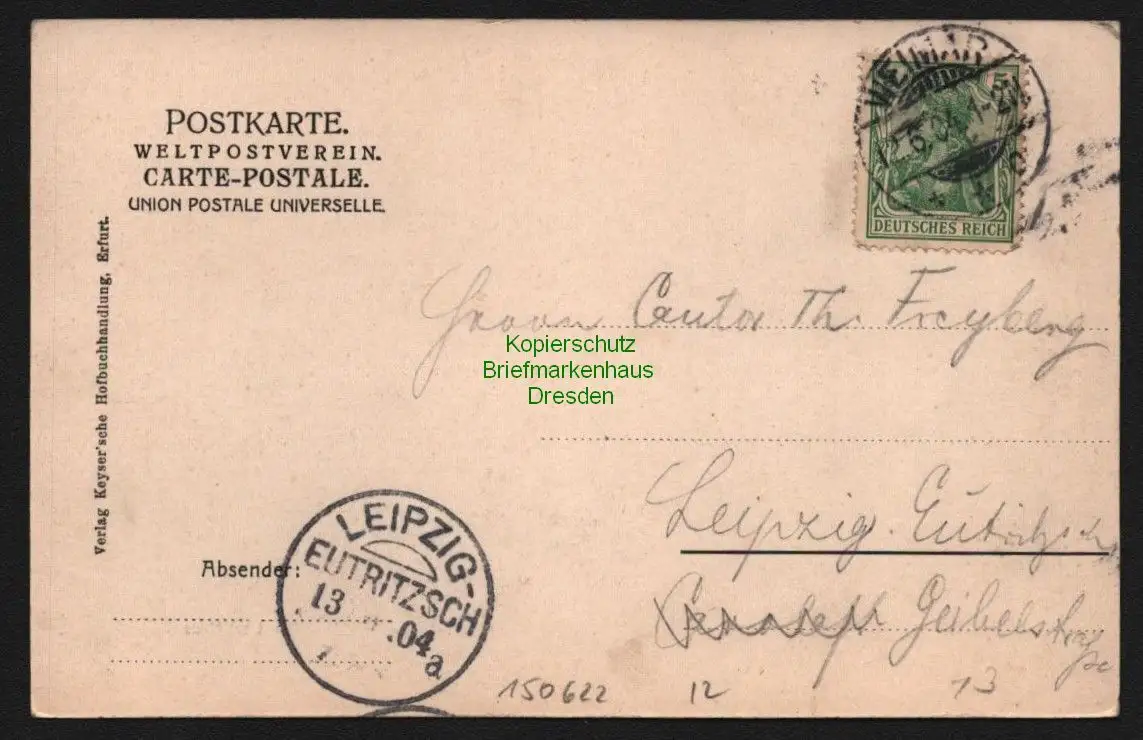 POSTKARTE.
WELTPOSTVEREIN.
CARTE-POSTALE.
UNION POSTALE UNIVERSELLE.
Verlag Keyser'sche Hofbuchhandlung, Erfurt.
WEIMAR
5
DEUTSCHES REICH
Herrn Cantor Th. Freyberg
Kopierschutz
Briefmarkenhaus
Dresden
Leipzig. Eutritzsch
Geibelstraße
Absender:
LEIPZIG-
EUTRITZSCH
13 .04
a
150622 12 13